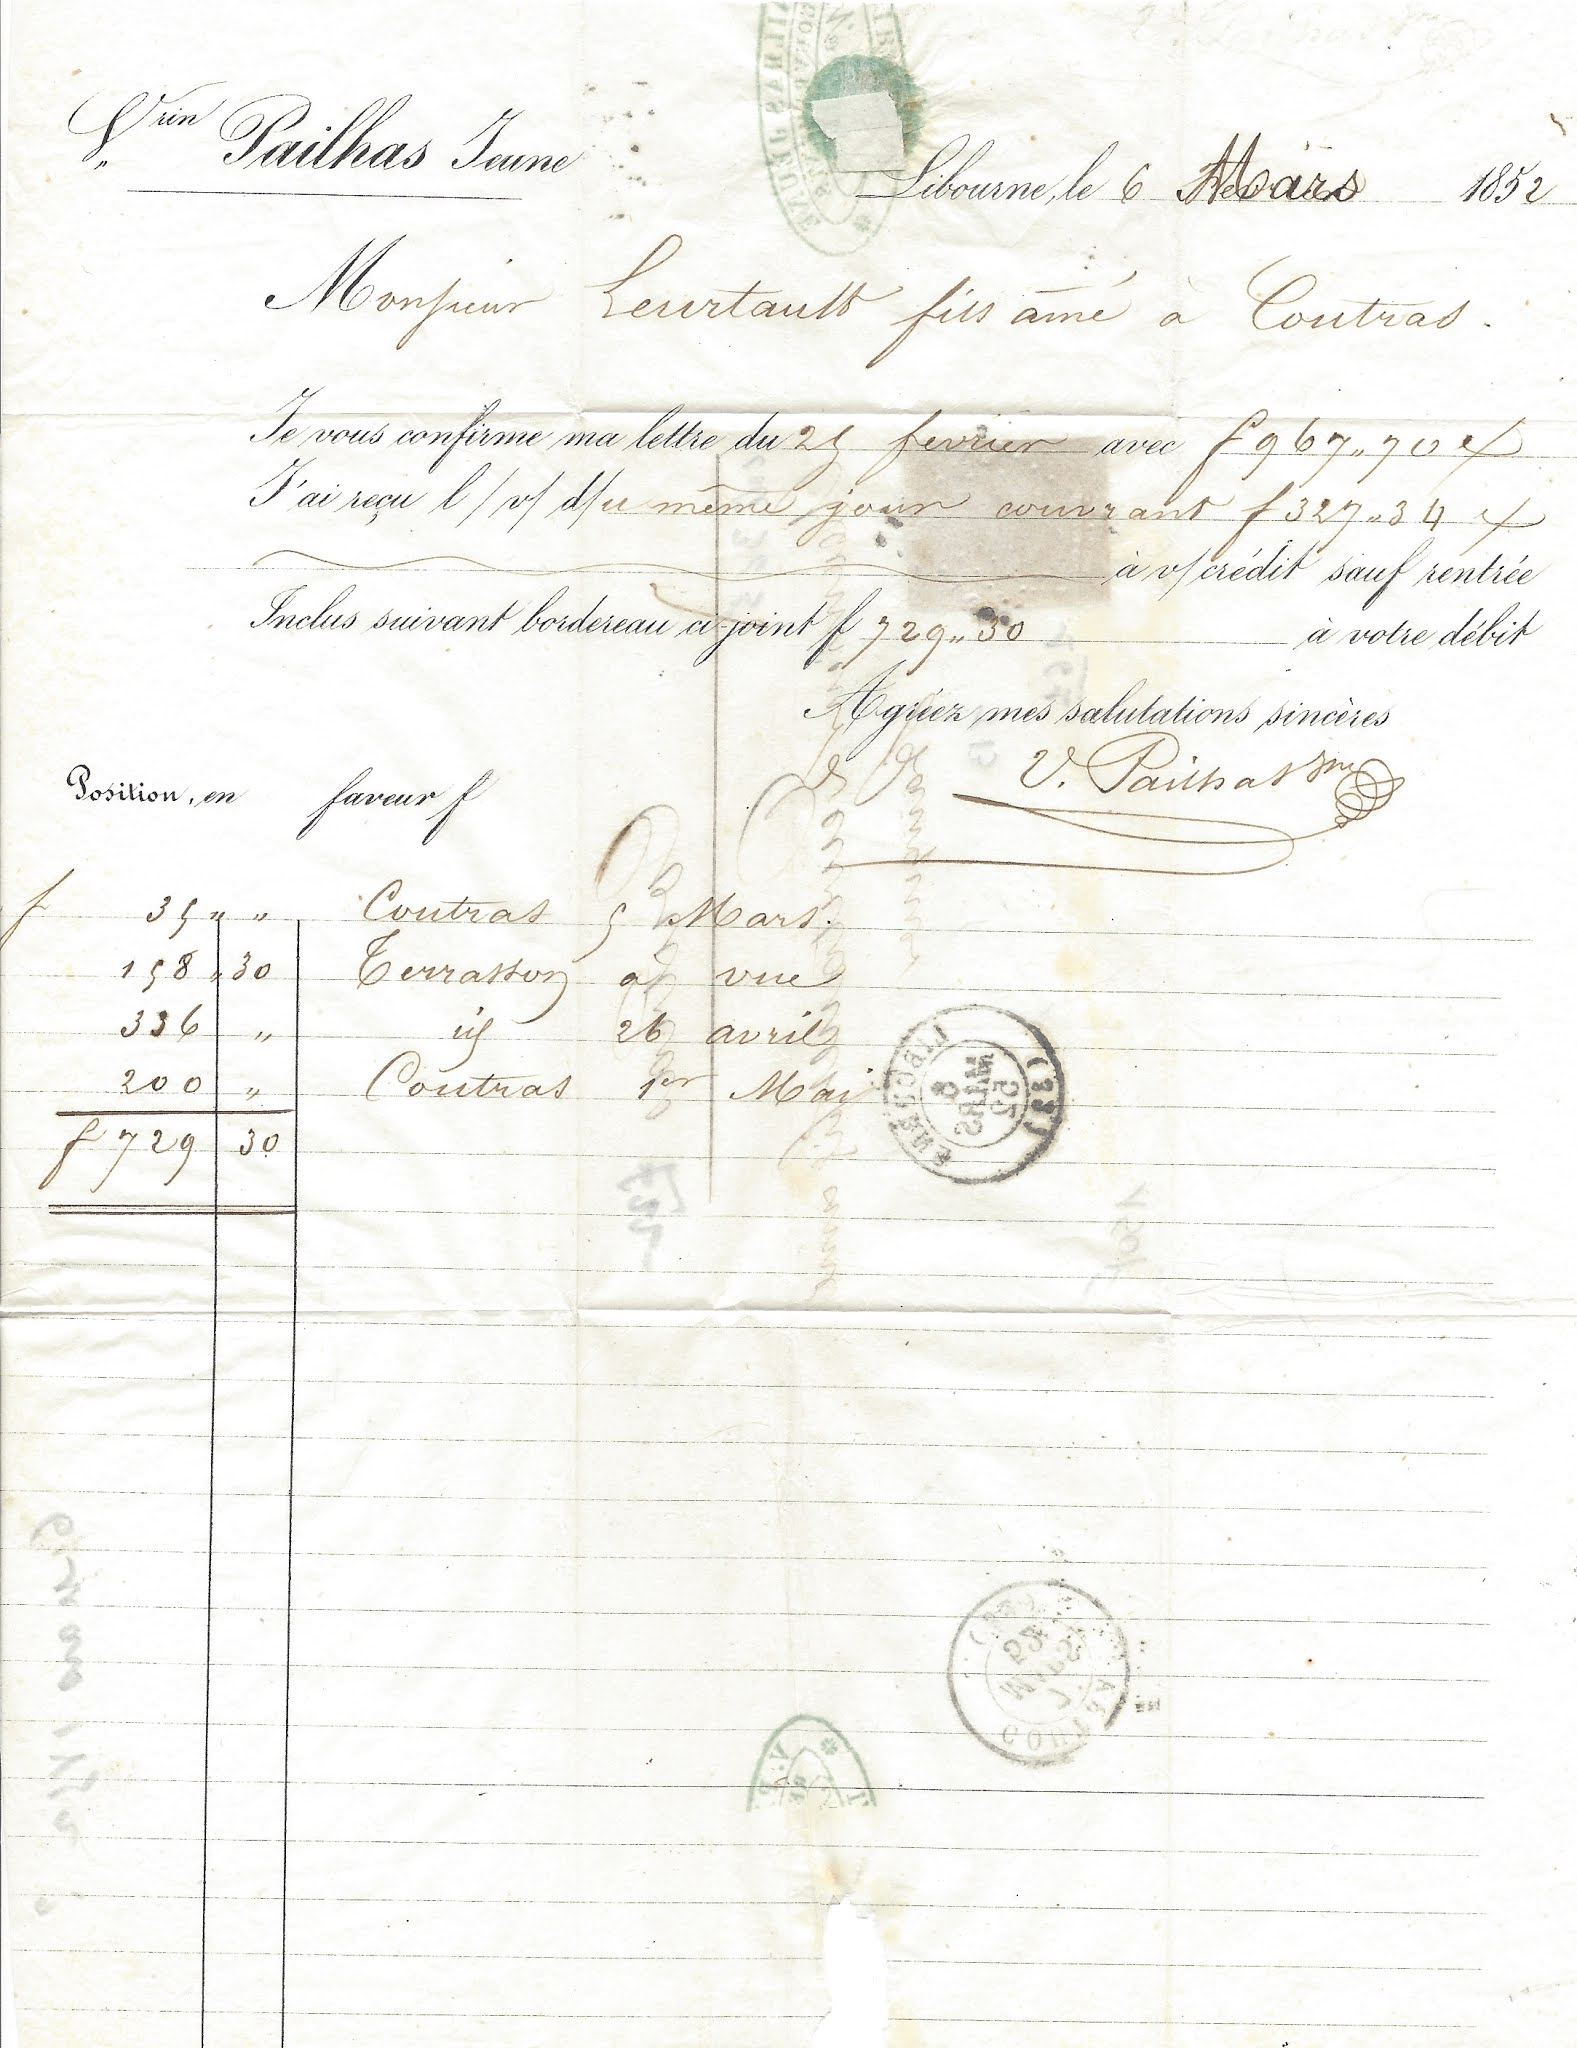 Vrin Pailhas Jeune
Libourne, le 6 Mars 1852
Monsieur Leurtault fils aîné à Coutras.
Je vous confirme ma lettre du 25 fevrier avec f 967 " 70 c/
J'ai reçu l/ v/ d/u même jour couvrant f 327 " 34 c/
à v/ crédit sauf rentrée
Inclus suivant bordereau ci-joint f 729 " 30 à votre débit
Agréez mes salutations sincères
V. Pailhas Jne
Position, en faveur f
f 35 " " Coutras 5 Mars.
158 " 30 Terrasson à vue
336 " id 26 avril
200 " Coutras 1er Mai
f 729 30
LIBOURNE (32)
8
MARS
52
COUTRAS
7
MARS
52